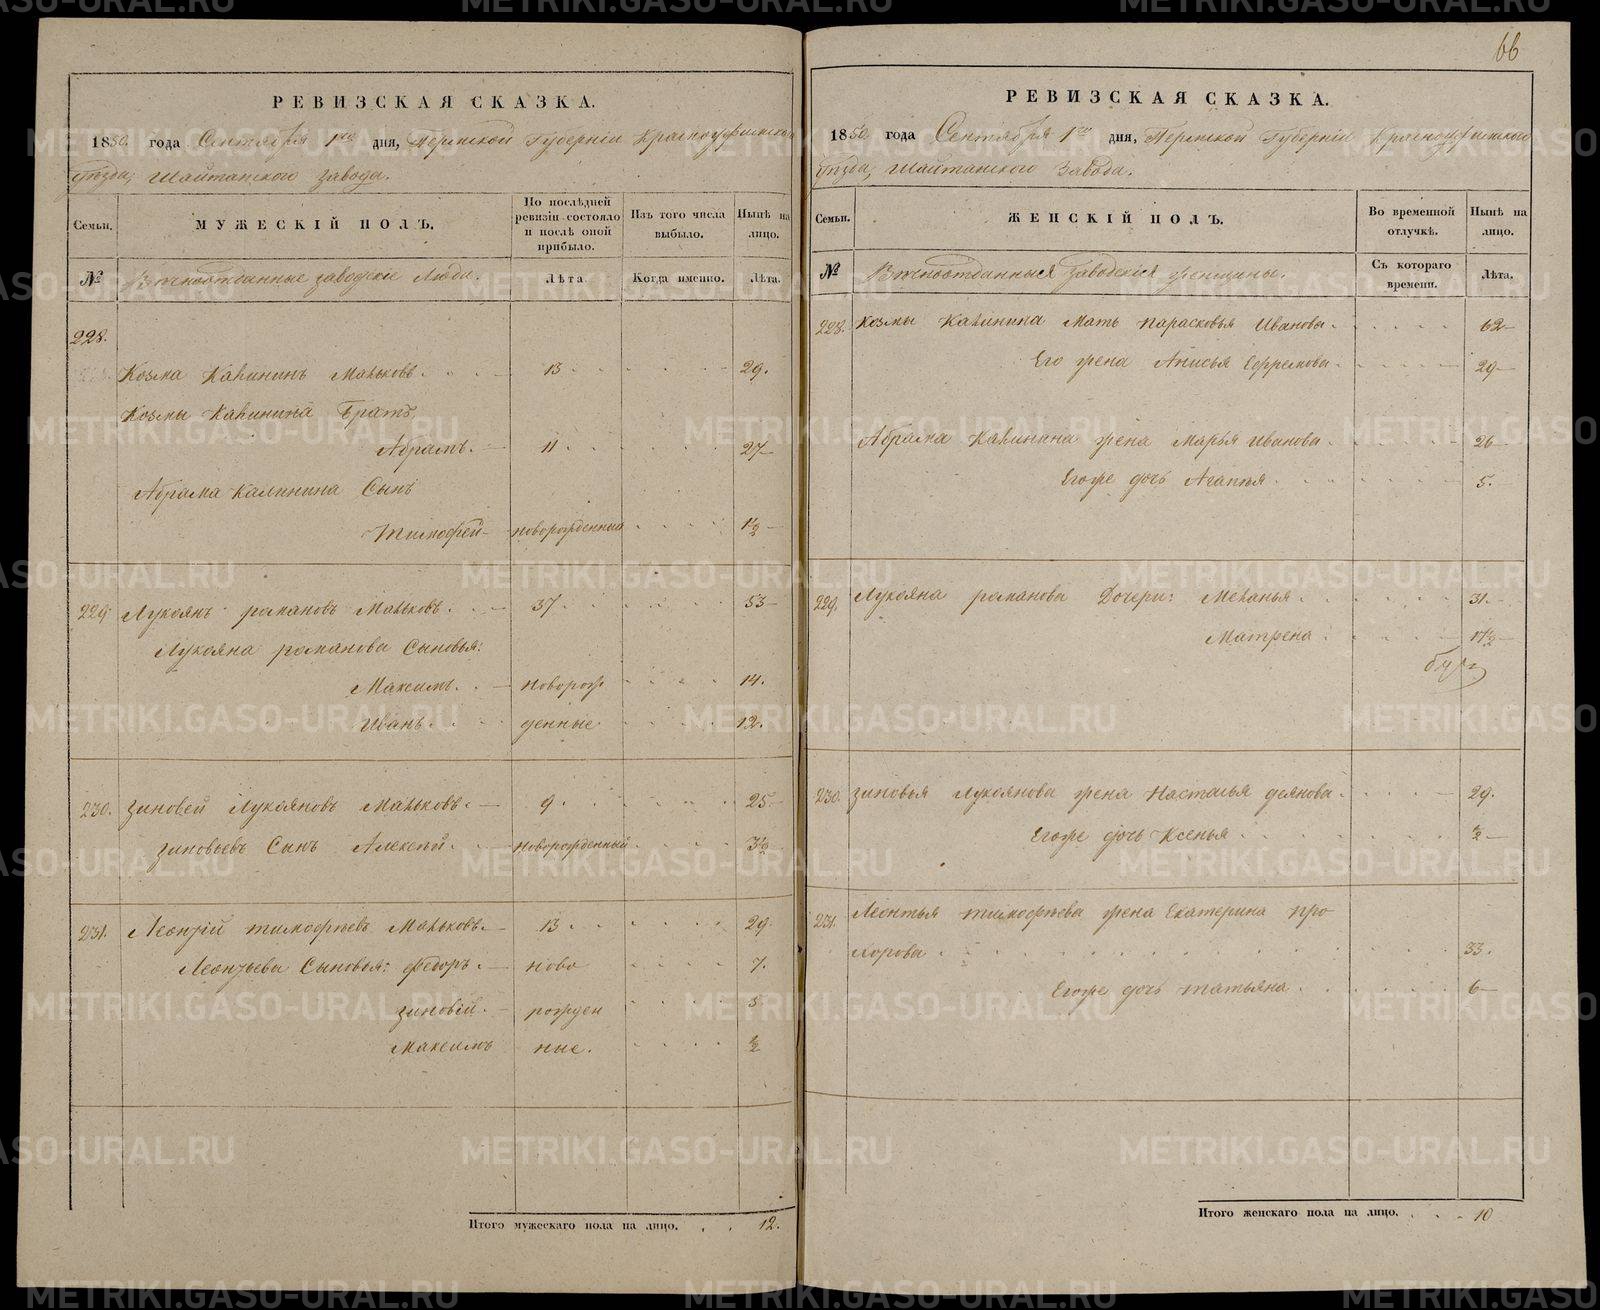 66
РЕВИЗСКАЯ СКАЗКА.
1850 года Сентября 1го дня, Пермской Губерніи Красноуфимскаго
уѣзда, Шайтанскаго завода.
Семьи.
МУЖЕСКІЙ ПОЛЪ.
По послѣдней ревизіи состояло и послѣ оной прибыло.
Изъ того числа выбыло.
Нынѣ на лицо.
№
Вѣчноотданные заводскіе Люди.
Лѣта.
Когда именно.
Лѣта.
228.
Козма Калининъ Маньковъ. 13 29.
Козмы Калинина Братъ
Абрамъ. 11 27
Абрама Калинина Сынъ
Тимофей новорожденный 1½
229 Лукоянъ романовъ Маньковъ. 37 53
Лукояна романова Сыновья:
Максимъ. новорож 14.
Иванъ. денные 12.
230. зиновей Лукояновъ Маньковъ. 9. 25.
зиновьевъ Сынъ Алексѣй. новорожденный. 3½
231. Леонтій тимофѣевъ Маньковъ. 13 29
Леонтьева Сыновья: Федоръ. ново 7.
зиновій. рожден 5
Максимъ ные. ½
Итого мужескаго пола на лицо. 12.
РЕВИЗСКАЯ СКАЗКА.
1850 года Сентября 1го дня, Пермской Губерніи Красноуфимскаго
уѣзда, Шайтанскаго Завода.
Семьи.
ЖЕНСКІЙ ПОЛЪ.
Во временной отлучкѣ.
Нынѣ на лицо.
№
Вѣчноотданныя Заводскія женщины.
Съ котораго времени.
Лѣта.
228. Козмы Калинина Мать Парасковья Иванова. 62
Его жена Анисья Ефремова. 29
Абрама Калинина жена Марья Иванова. 26
Егоже дочь Агапья 5.
229. Лукояна романова Дочери: Меланья 31.
Матрена 17½
230. зиновья Лукоянова жена Настасья деянова. 29.
Егоже дочь Ксенья ½
231. Леонтья тимофѣева жена Екатерина про
хорова 33.
Егоже дочь татьяна. 6
Итого женскаго пола на лицо. 10
METRIKI.GASO-URAL.RU